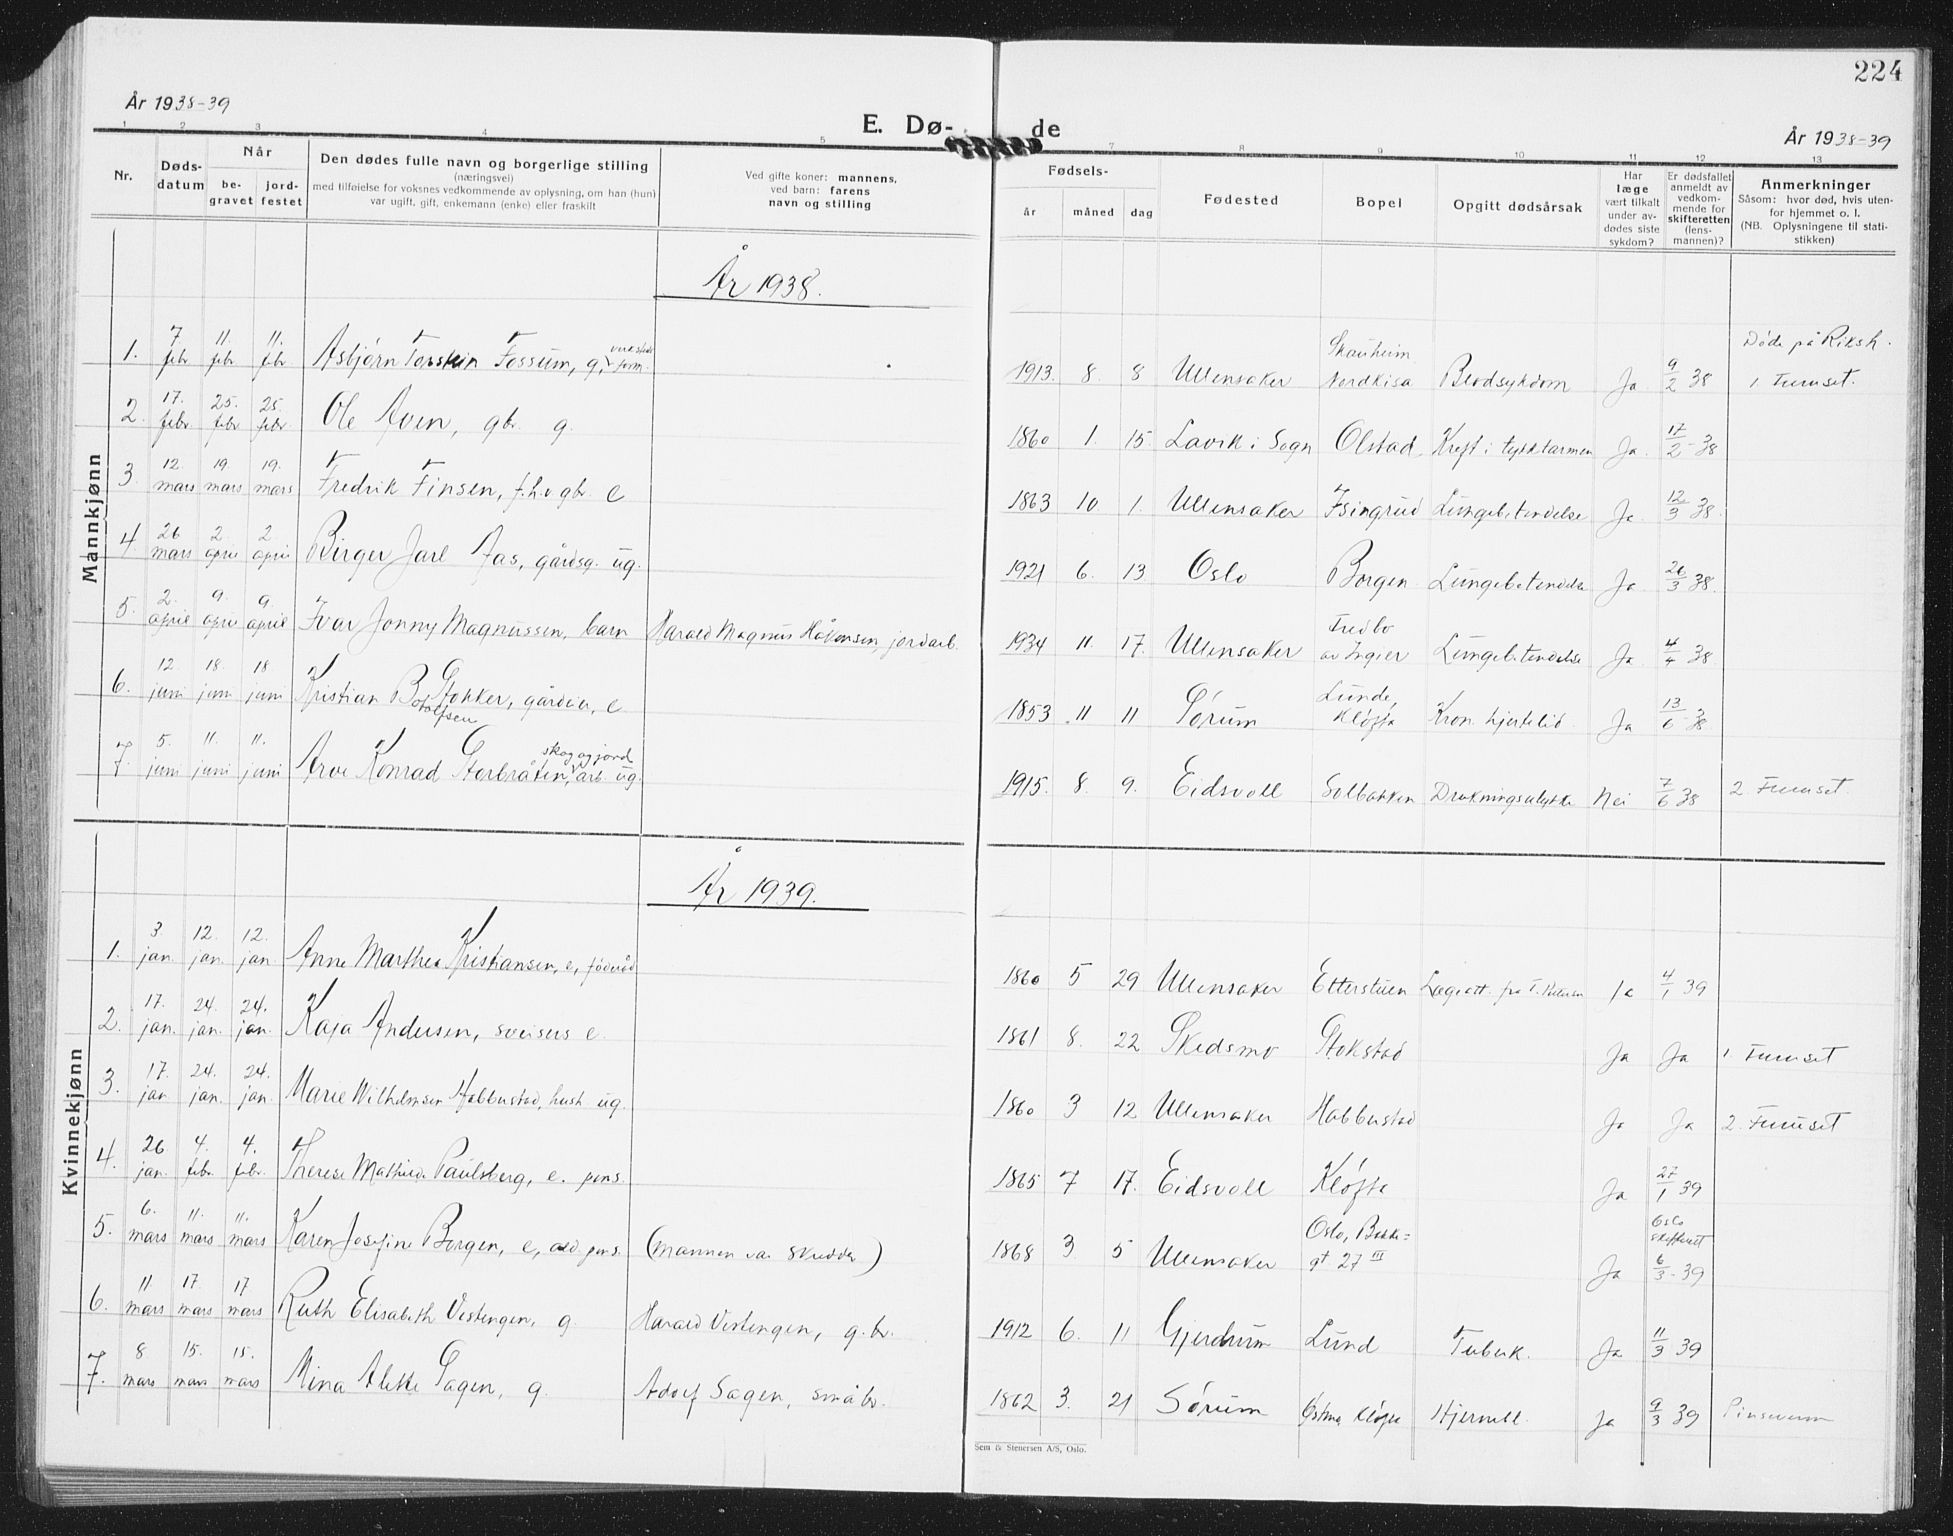 224
År 1938-39
E. Dø- de
År 1938-39
1 2 3 4 5 7 8 9 10 11 12 13
Nr.
Døds-
datum
Når
be-
gravet
jord-
festet
Den dødes fulle navn og borgerlige stilling
(næringsvei)
med tilføielse for voksnes vedkommende av oplysning, om han (hun)
var ugift, gift, enkemann (enke) eller fraskilt
Ved gifte koner: mannens,
ved barn: farens
navn og stilling
Fødsels-
år måned dag
Fødested
Bopel
Opgitt dødsårsak
Har
læge
vært tilkalt
under av-
dødes siste
sykdom?
Er dødsfallet
anmeldt av
vedkom-
mende for
skifteretten
(lens-
mannen)?
Anmerkninger
Såsom: hvor død, hvis uten-
for hjemmet o. l.
(NB. Oplysningene til stati-
stikken)
Mannkjønn
År 1938.
1. 7 febr 11. febr 11. febr Asbjørn Torstein Fossum, g. form. 1913. 8. 8 Ullensaker Skauheim Nordkisa Blodsykdom Ja 9/2 38 Døde på Riksh. 1. Furuset.
2. 17. febr. 25. febr 25. febr. Ole Aven, gbr. g. 1860 1. 15. Lavik i Sogn Olstad Kreft i tykktarmen Ja. 17/2-38
3. 12. mars 19. mars 19. mars Fredrik Finsen, f.h.v gbr. e 1863 10. 1. Ullensaker Isingrud Lungebetendelse Ja. 12/3 38.
4 26 mars 2 april 2 april Birger Jarl Aas, gårdsg. ug. 1921 6. 13 Oslo Borgen Lungebetendelse Ja 26/3 38.
5. 2. april 9. april 9. april Ivar Jonny Magnussen, barn Harald Magnus Håkonsen, jordarb. 1934 11. 17. Ullensaker Fredbo av Ingier Lungebetendelse Ja 4/4 38
6. 12. juni 18. juni 18 juni Kristian Botolfsen Stokker, gårdeier, e 1853 11 11 Sørum Lunde, Kløfta Kron. hjertelid. Ja 13/6-38.
7. 5. juni 11. juni 11. juni Arve Konrad Storbråten, skog og jord arb. ug. 1915. 8. 9. Eidsvoll Solbakken Drukningsulykke Nei 7/6 38 2 Furuset.
Kvinnekjønn
År 1939.
1. 3 jan. 12. jan. 12. jan Anne Marthea Kristiansen, e, føderåd 1860 5 29 Ullensaker Etterstuen Lægeatt. fra Ja 4/1 39
2. 17. jan. 24. jan. 24. jan. Kaja Andersen, sveisers e. 1861 8. 22 Skedsmo Stokstad Ja Ja 1. Furuset
3. 17. jan 24. jan. 24. jan. Marie Wilhelmsen Habberstad, hush. ug. 1860 3 12 Ullensaker Habberstad Ja Ja 2. Furuset
4. 26 jan. 4. febr. 4. febr. Therese Mathilde Paulsberg, e. pens. 1865 7 17. Eidsvoll Kløfta Ja 27/1 39
5. 6. mars 11. mars 11. mars Karen Josefine Borgen, e, ald. pens. (Mannen var skredder) 1868 3. 5 Ullensaker Oslo, gt 27 III Ja Oslo skifterett 6/3-39
6. 11 mars 17. mars 17 mars Ruth Elisabeth Vestengen, g. Harald Vestengen, g.br. 1912 6. 11 Gjerdrum Lund Tuberk. Ja 11/3 39
7. 8. mars 15. mars 15. mars Mina Alette Sagen, g. Adolf Sagen, småbr. 1862 3. 21 Sørum Kløfta Ja 9/3 39 Pinsevenn
Sem & Stenersen A/S, Oslo.